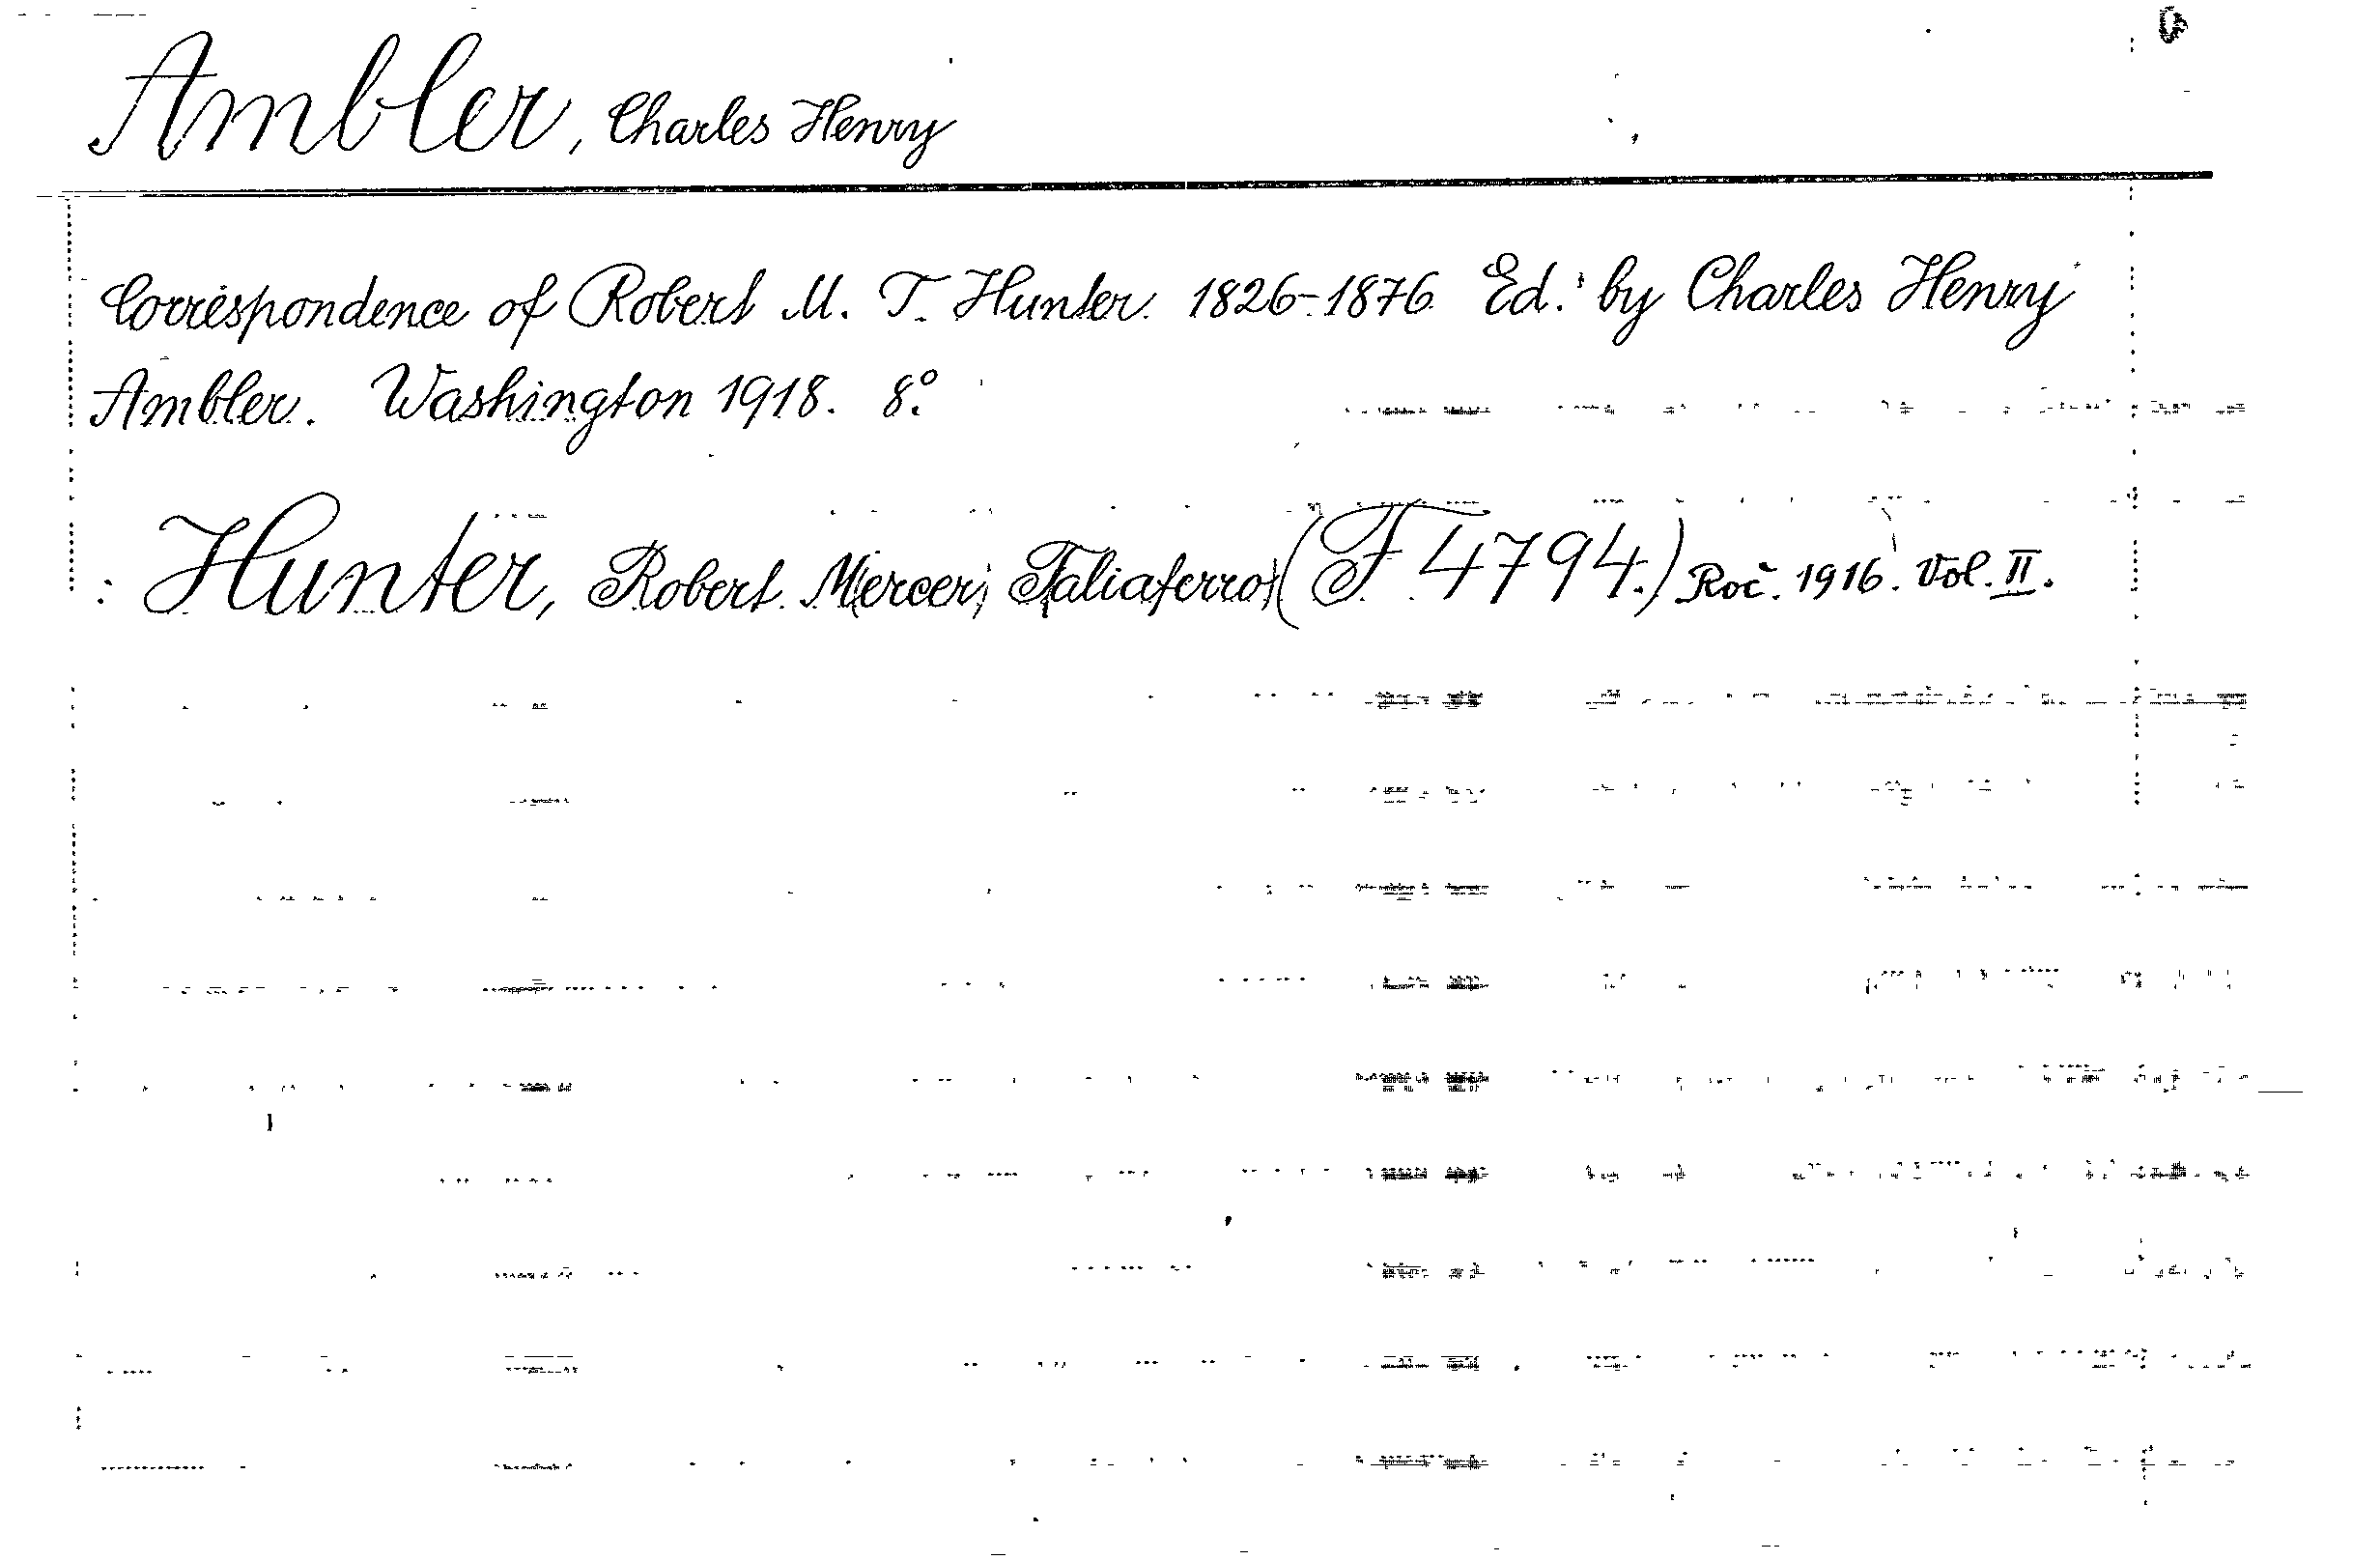 Ambler, Charles Henry
Correspondence of Robert M. T. Hunter 1826-1876 Ed. by Charles Henry
Ambler. Washington 1918. 8°.
: Hunter, Robert Mercer, Taliaferro (F 4794.) Roč. 1916. Vol. II.